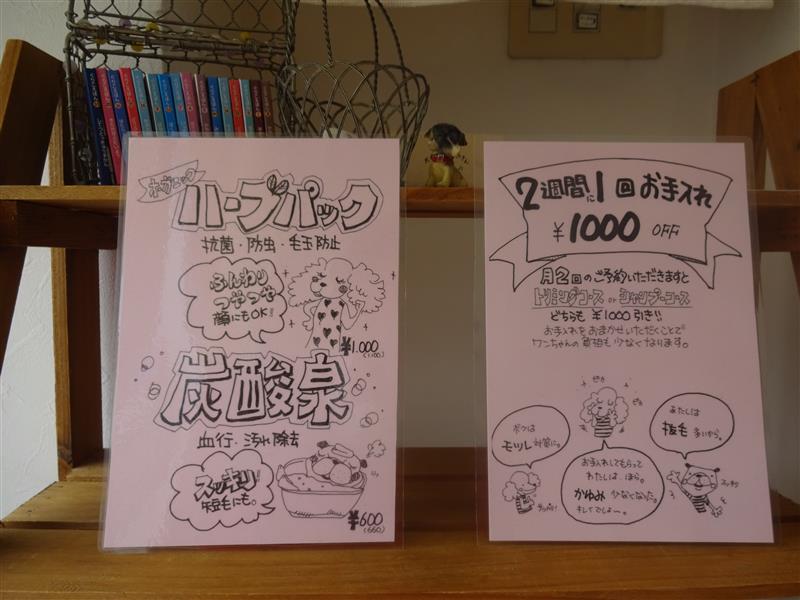 オーガニック
ハーブパック
抗菌・防虫・毛玉防止
ふんわり
つやつや
顔にもOK!!
¥1,000
(1,100)
炭酸泉
血行・汚れ除去
スッキリ!
短毛にも。
¥600
(660)
2週間に1回お手入れ
¥1000 OFF
月2回のご予約いただきますと
トリミングコース or シャンプーコース
どちらも ¥1000引き!!
お手入れをおまかせいただくことで
ワンちゃんの負担も少なくなります。
ボクは
モツレ対策に。
お手入れしてもらって
わたしは、ほら。
かゆみ 少なくなった。
あたしは
抜毛 多いから。